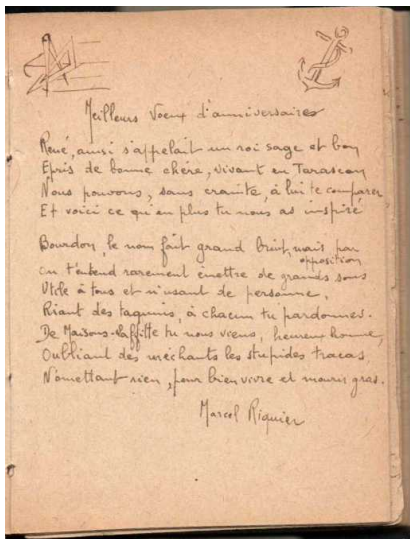 Meilleurs Voeux d'anniversaires
René, ainsi s'appelait un roi sage et bon
Epris de bonne chère, vivant en Tarascon
Nous pouvons, sans crainte, à lui te comparer
Et voici ce qu'en plus tu nous as inspiré
Bourdon, le nom fait grand bruit, mais par opposition
On t'entend rarement émettre de grands sons
Utile à tous et n'usant de personne,
Riant des taquins, à chacun tu pardonnes.
De Maisons-Laffitte tu nous viens, heureux homme,
Oubliant des méchants les stupides tracas,
N'omettant rien, pour bien vivre et mourir gras.
Marcel Riquier